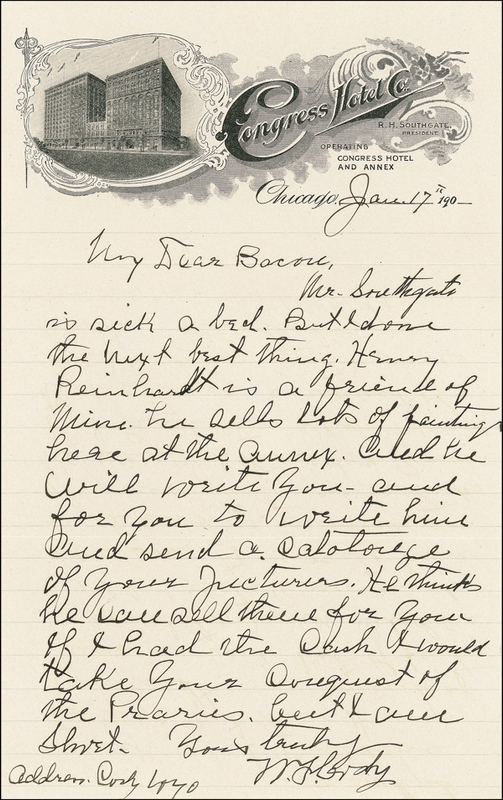 Congress Hotel Co.
R. H. SOUTHGATE,
PRESIDENT.
OPERATING
CONGRESS HOTEL
AND ANNEX
Chicago, Jan. 17" 190-
My Dear Bacon,
Mr. Southgate
is sick a bed. But I done
the next best thing. Henry
Reinhardt is a friend of
Mine. he sells lots of paintings
here at the annex. And he
will write you - and
for you to write him
And send a. Catolouge
of your Picturers. He thinks
he can sell them for you
If I had the Cash I would
take your Conquest of
the Praries. but I am
Short- Yours truly
W. F. Cody
Address. Cody Wyo